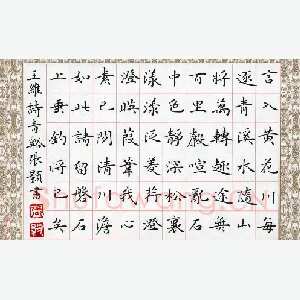 言入黄花川每
逐青溪水隨山
將萬轉趣途無
百里聲喧亂石
中色靜深松裏
漾漾泛菱荇澄
澄映葭葦我心
素已閑清川澹
如此請留盤石
上垂釣將已矣
王維詩青谿張書